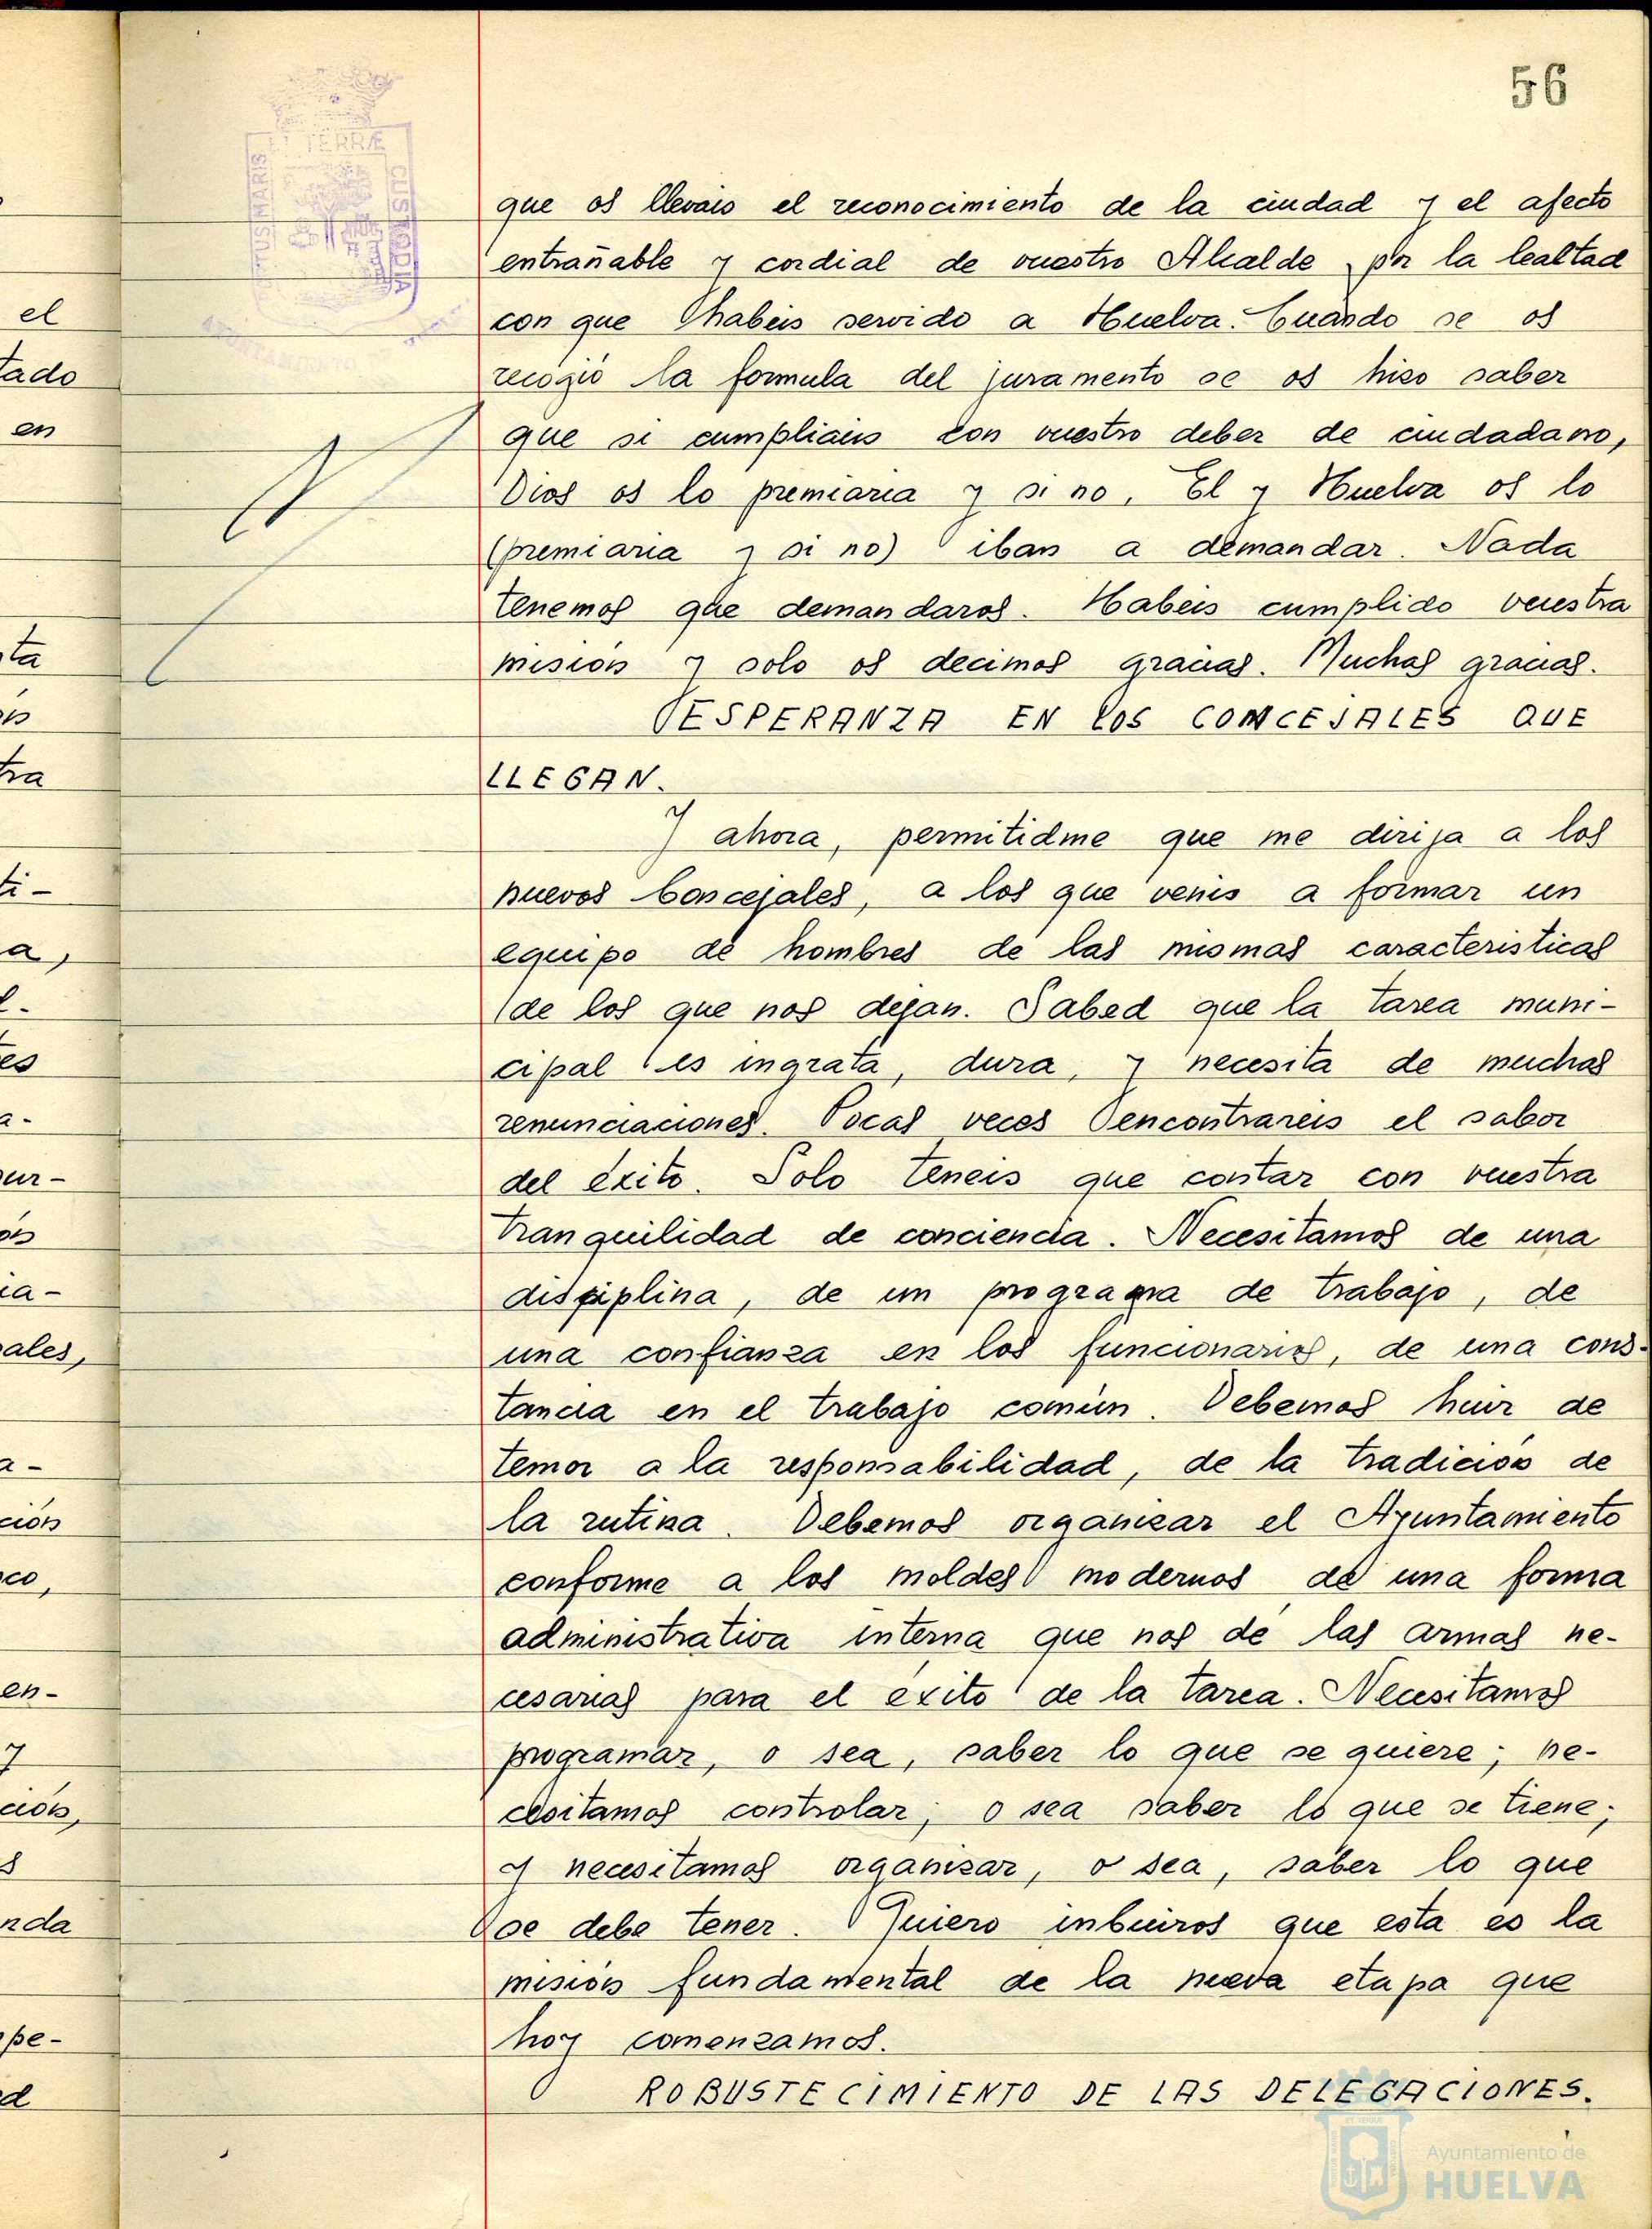 56
que os llevais el reconocimiento de la ciudad y el afecto
entrañable y cordial de vuestro Alcalde por la lealtad
con que habeis servido a Huelva. Cuando se os
recogió la formula del juramento se os hiso saber
que si cumpliais con vuestro deber de ciudadano,
Dios os lo premiaria y si no, El y Huelva os lo
(premiaria y si no) iban a demandar. Nada
tenemos que demandaros. Habeis cumplido vuestra
misión y solo os decimos gracias. Muchas gracias.
ESPERANZA EN LOS CONCEJALES QUE
LLEGAN.
Y ahora, permitidme que me dirija a los
nuevos Concejales, a los que venis a formar un
equipo de hombres de las mismas caracteristicas
de los que nos dejan. Sabed que la tarea muni-
cipal es ingrata, dura, y necesita de muchas
renunciaciones. Pocas veces encontrareis el sabor
del éxito. Solo teneis que contar con vuestra
tranquilidad de conciencia. Necesitamos de una
disciplina, de un programa de trabajo, de
una confianza en los funcionarios, de una cons-
tancia en el trabajo común. Debemos huir de
temor a la responsabilidad, de la tradición de
la rutina. Debemos organizar el Ayuntamiento
conforme a los moldes modernos de una forma
administrativa interna que nos dé las armas ne-
cesarias para el éxito de la tarea. Necesitamos
programar, o sea, saber lo que se quiere; ne-
cesitamos controlar, o sea saber lo que se tiene;
y necesitamos organizar, o sea, saber lo que
se debe tener. Quiero inbuiros que esta es la
misión fundamental de la nueva etapa que
hoy comenzamos.
ROBUSTECIMIENTO DE LAS DELEGACIONES.
el
tado
en
ta
ón
tra
ti-
a,
l.
es
a-
ur-
ón
ia-
ales,
a-
ción
co,
en-
y
ción,
s
nda
pe-
d
TERRÆ
MARIS
CUSTODIA
AYUNTAMIENTO DE
Ayuntamiento de
HUELVA